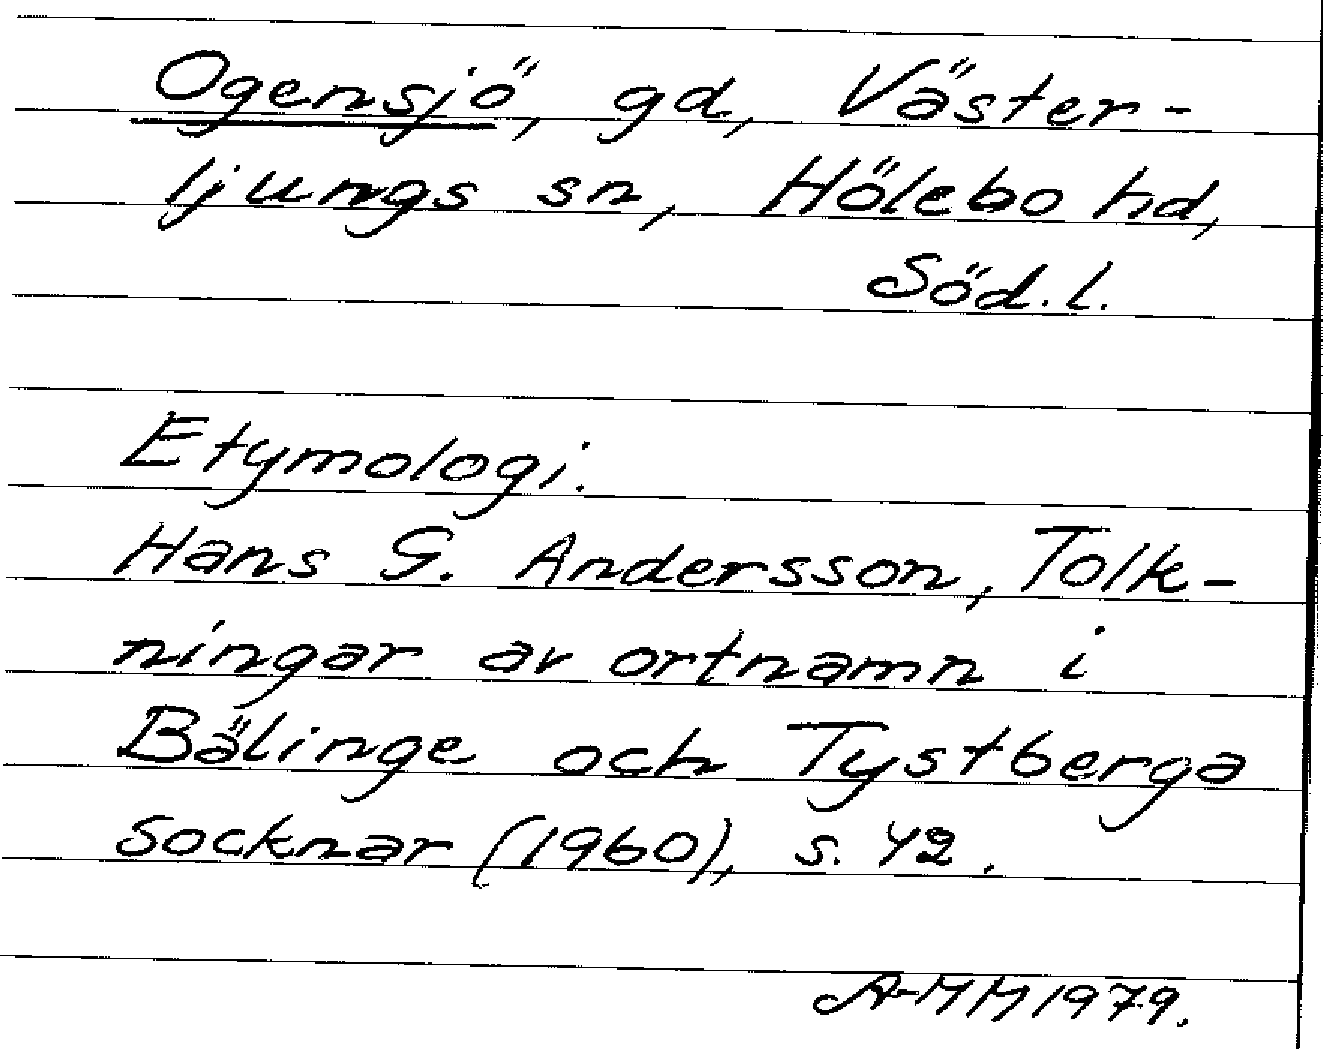 Ogensjö, gd, Väster-
ljungs sn, Hölebo hd,
Söd.l.
Etymologi.
Hans G. Andersson, Tolk-
ningar av ortnamn i
Bälinge och Tystberga
socknar (1960), s. 42.
A-MM 1979.